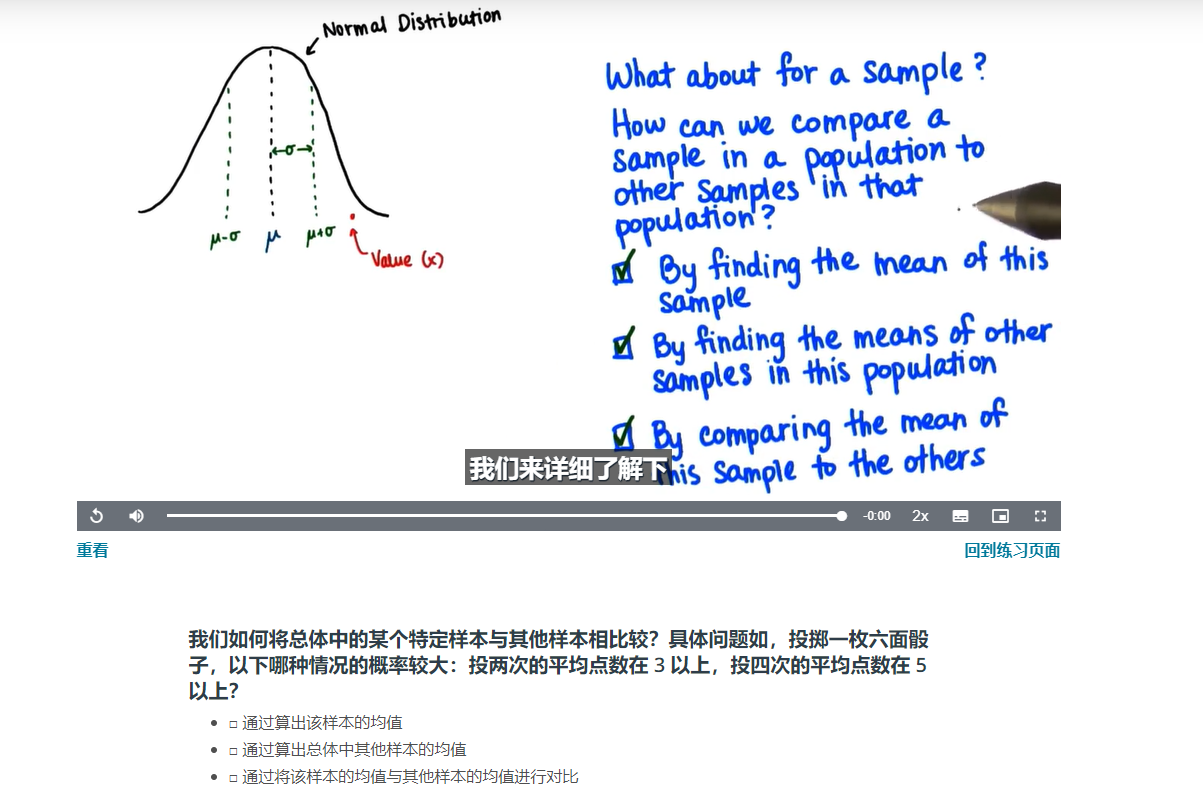 Normal Distribution
σ
μ-σ
μ
μ+σ
Value (x)
What about for a sample?
How can we compare a
sample in a population to
other samples in that
population?
By finding the mean of this
sample
By finding the means of other
samples in this population
By comparing the mean of
this sample to the others
我们来详细了解下
-0:00
2x
重看
回到练习页面
我们如何将总体中的某个特定样本与其他样本相比较？具体问题如，投掷一枚六面骰
子，以下哪种情况的概率较大：投两次的平均点数在 3 以上，投四次的平均点数在 5
以上？
通过算出该样本的均值
通过算出总体中其他样本的均值
通过将该样本的均值与其他样本的均值进行对比